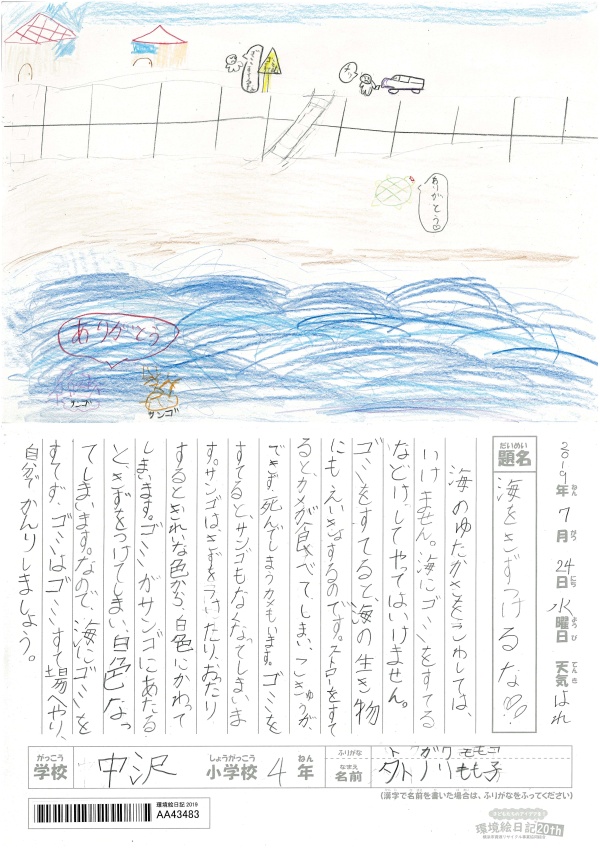 ありがとう♡
ありがとう
サンゴ
サンゴ
2019年ねん 7月がつ 24日にち 水曜日ようび 天気てんき はれ
題名だいめい 海をきずつけるな♡♡!
海のゆたかさをこわしては、
いけません。海にゴミをすてる
などけしてやってはいけません。
ゴミをすてると海の生き物
にもえいきょするのです。ストローをすて
るとカメが食べてしまい、こきゅうが、
できず、死んでしまうカメもいます。ゴミを
すてるとサンゴもなくなってしまいま
す。サンゴは、きずをつけたり、おったり
するときれいな色から、白色にかわって
しまいます。ゴミがサンゴにあたる
と、きずをつけてしまい、白色なっ
てしまいます。なので、海にゴミを
すてず、ゴミはゴミすて場へやり、
自分でかんりしましょう。
学校がっこう 中沢 小学校しょうがっこう 4年ねん
ふりがな トノガワ モモコ
名前なまえ 外ノ川 もも子
(漢字で名前を書いた場合は、ふりがなをふってください)
環境絵日記 2019
AA43483
環境絵日記20th